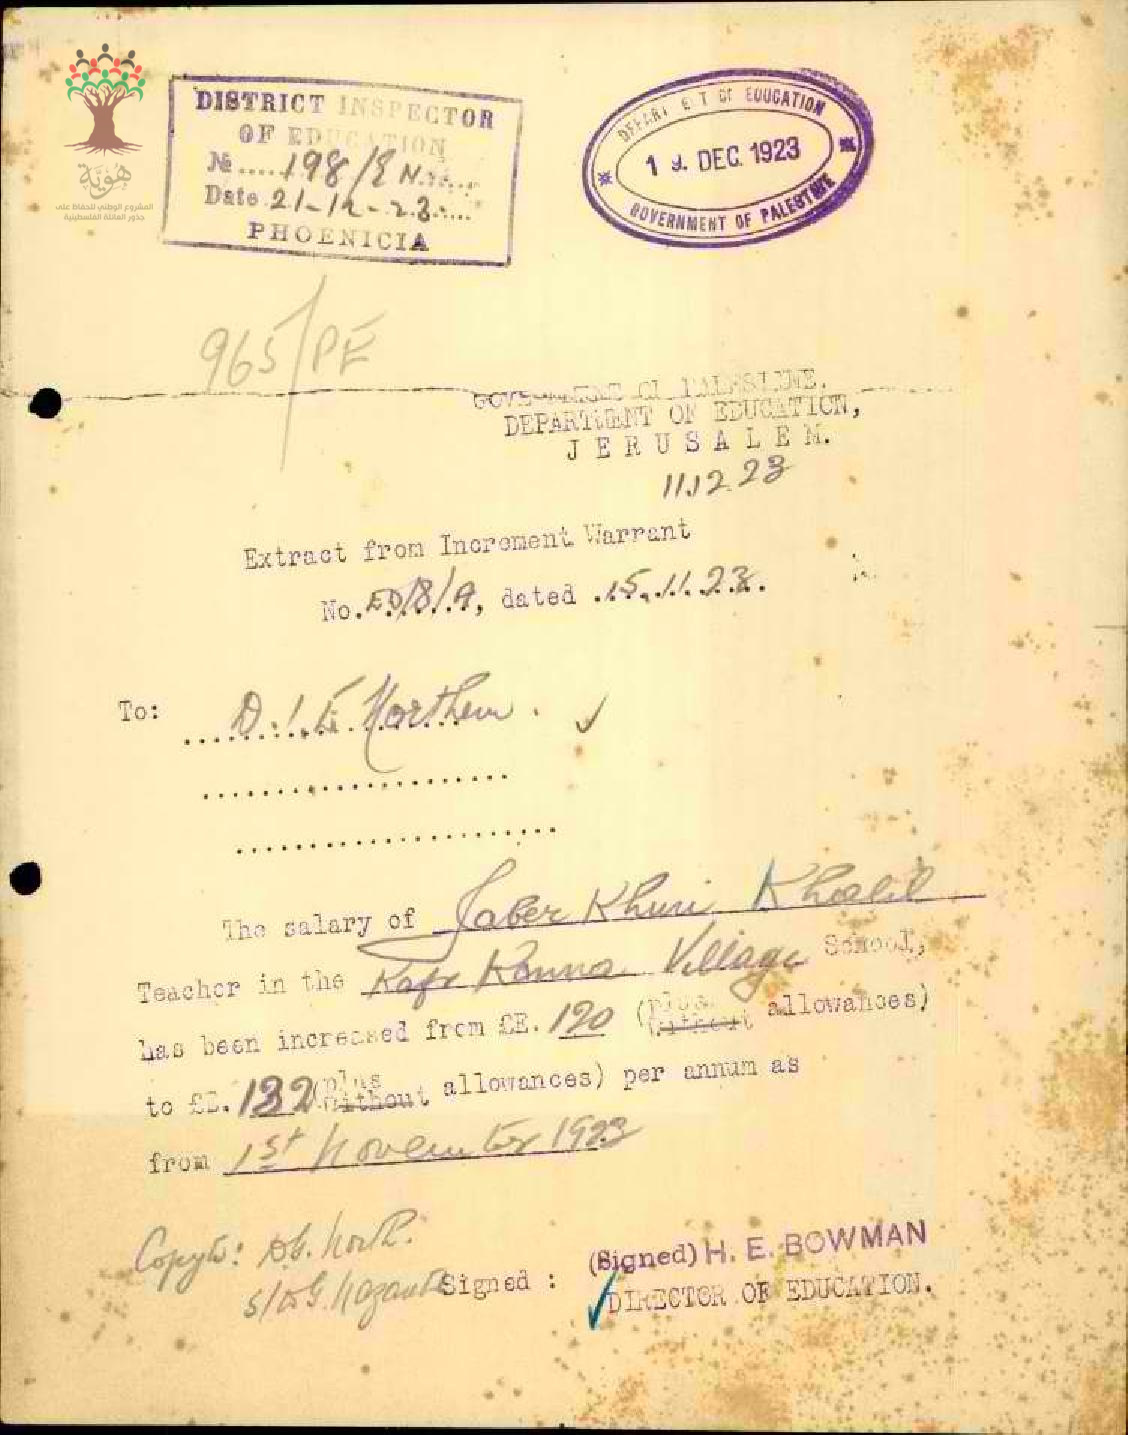 هوية
المشروع الوطني للحفاظ على
جذور العائلة الفلسطينية
DISTRICT INSPECTOR
OF EDUCATION
No 198/8 N.
Date 21-12-23
PHOENICIA
DEPARTMENT OF EDUCATION
19. DEC. 1923
GOVERNMENT OF PALESTINE
965/PE
GOVERNMENT OF PALESTINE.
DEPARTMENT OF EDUCATION,
JERUSALEM.
11.12.23
Extract from Increment Warrant
No. ED/8/9, dated 15.11.23.
To: D.I.E Northern.
The salary of Jaber Khuri Khalil
Teacher in the Kafr Kanna Village School,
has been increased from £E. 120 (plus without allowances)
to £E. 132 (plus without allowances) per annum as
from 1st November 1923
Copy to: D.G. North.
Signed : (Signed) H. E. BOWMAN
DIRECTOR OF EDUCATION.